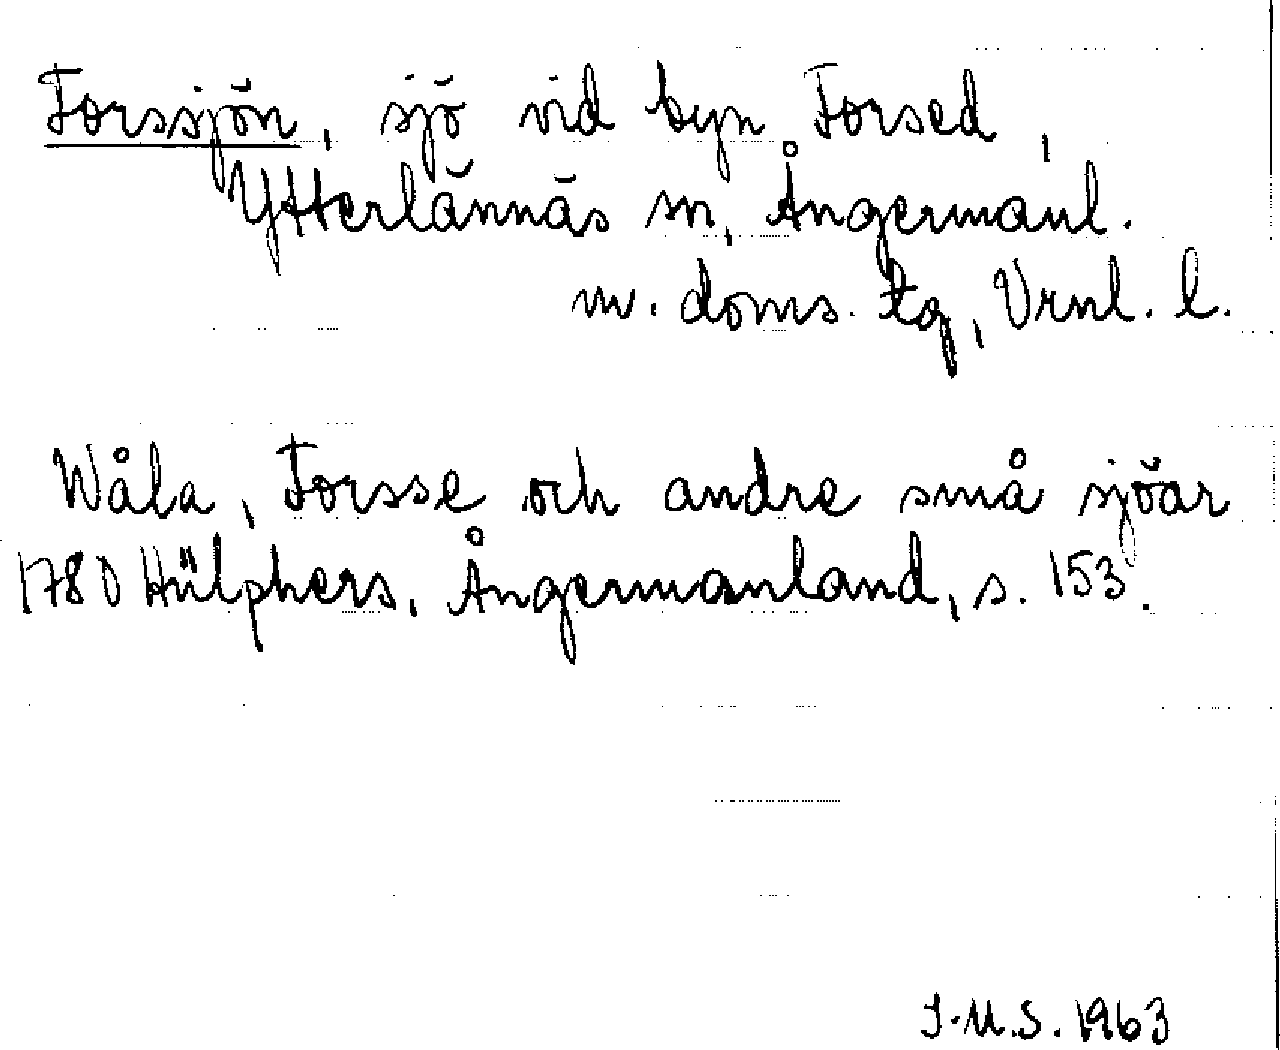 Forssjön, sjö vid byn Forsed,
Ytterlännäs sn, Ångermanl.
m. doms. tg, Vrnl. l.
Wåla, Forsse och andre små sjöar
1780 Hülphers, Ångermanland, s. 153.
J.M.S. 1963